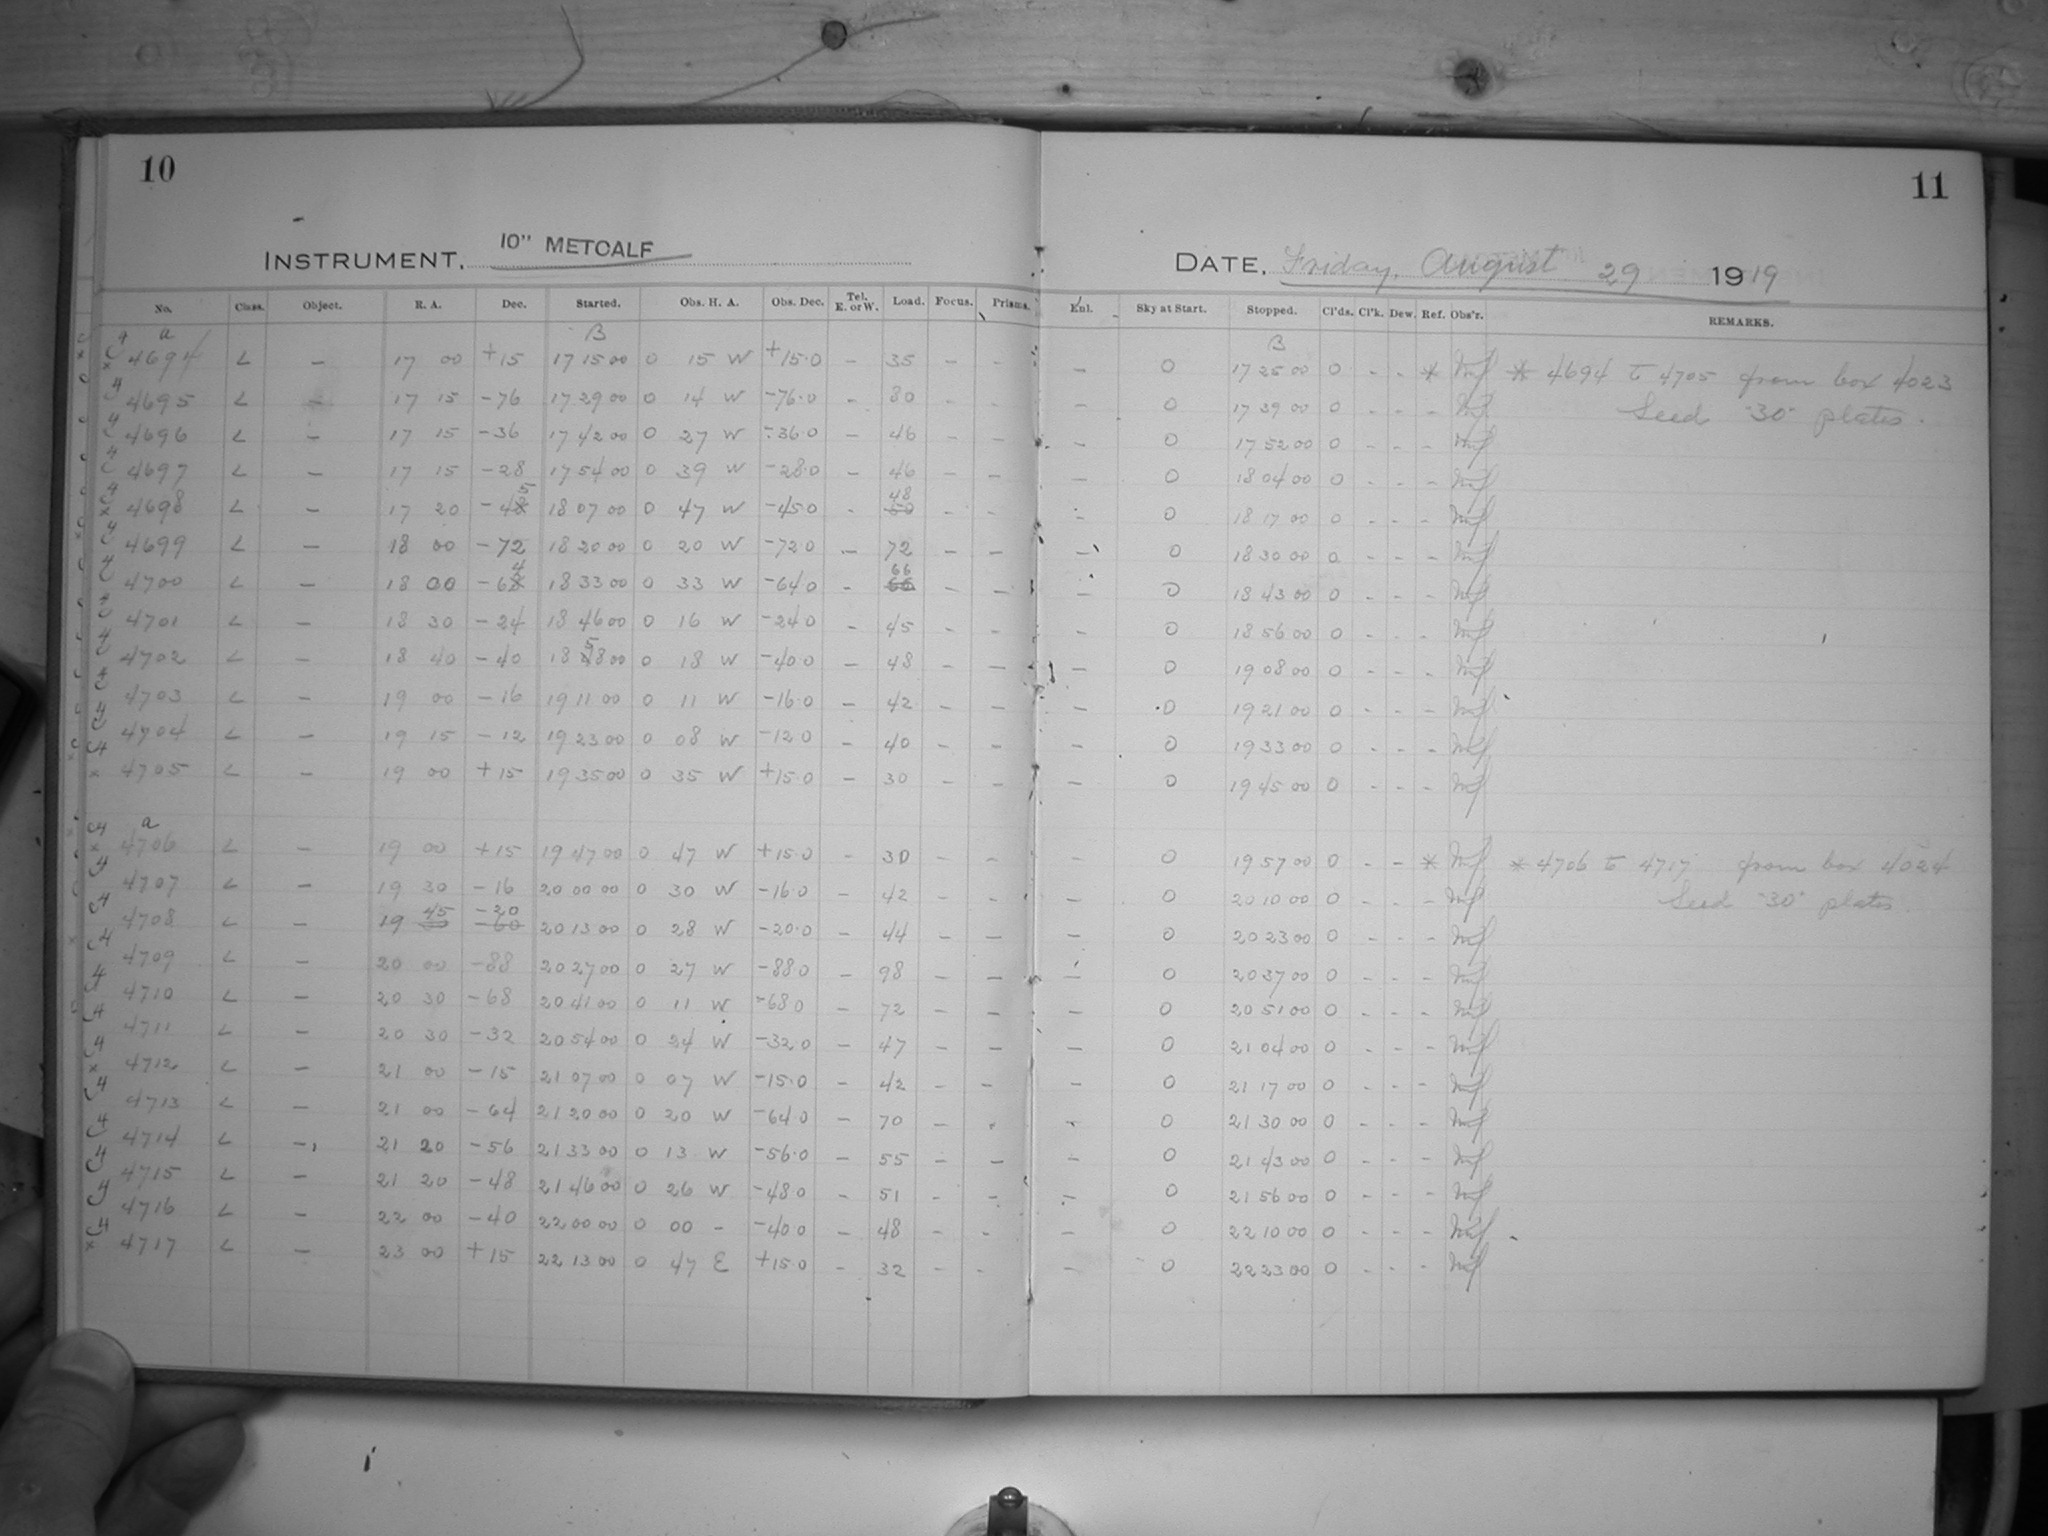 10
11
INSTRUMENT. 10" METCALF
DATE. Friday, August 29 1919
No. Class. Object. R. A. Dec. Started. Obs. H. A. Obs. Dec. Tel. E. or W. Load. Focus. Prisms. Enl. Sky at Start. Stopped. Cl'ds. Cl'k. Dew. Ref. Obs'r. REMARKS.
a B B
4694 L - 17 00 +15 17 15 00 0 15 W +15.0 - 35 - - - 0 17 25 00 0 - - * * 4694 to 4705 from box 4023
4695 L 17 15 -76 17 29 00 0 14 W -76.0 - 80 - - - 0 17 39 00 0 - - - Seed "30" plates.
4696 L - 17 15 -36 17 42 00 0 27 W -36.0 - 46 - - - 0 17 52 00 0 - - -
4697 L - 17 15 -28 17 54 00 0 39 W -28.0 - 46 - - - 0 18 04 00 0 - - -
4698 L - 17 20 -45 18 07 00 0 47 W -45.0 - 48 - - - 0 18 17 00 0 - - -
4699 L - 18 00 -72 18 20 00 0 20 W -72.0 - 72 - - - 0 18 30 00 0 - - -
4700 L - 18 00 -64 18 33 00 0 33 W -64.0 - 66 - - - 0 18 43 00 0 - - -
4701 L - 18 30 -24 18 46 00 0 16 W -24.0 - 45 - - - 0 18 56 00 0 - - -
4702 L - 18 40 -40 18 58 00 0 18 W -40.0 - 48 - - - 0 19 08 00 0 - - -
4703 L - 19 00 -16 19 11 00 0 11 W -16.0 - 42 - - - 0 19 21 00 0 - - -
4704 L - 19 15 -12 19 23 00 0 08 W -12.0 - 40 - - - 0 19 33 00 0 - - -
4705 L - 19 00 +15 19 35 00 0 35 W +15.0 - 30 - - - 0 19 45 00 0 - - -
a
4706 L - 19 00 +15 19 47 00 0 47 W +15.0 - 30 - - - 0 19 57 00 0 - - * * 4706 to 4717 from box 4024
4707 L - 19 30 -16 20 00 00 0 30 W -16.0 - 42 - - - 0 20 10 00 0 - - - Seed "30" plates.
4708 L - 19 45 -20 20 13 00 0 28 W -20.0 - 44 - - - 0 20 23 00 0 - - -
4709 L - 20 00 -88 20 27 00 0 27 W -88.0 - 98 - - - 0 20 37 00 0 - - -
4710 L - 20 30 -68 20 41 00 0 11 W -68.0 - 72 - - - 0 20 51 00 0 - - -
4711 L - 20 30 -32 20 54 00 0 24 W -32.0 - 47 - - - 0 21 04 00 0 - - -
4712 L - 21 00 -15 21 07 00 0 07 W -15.0 - 42 - - - 0 21 17 00 0 - - -
4713 L - 21 00 -64 21 20 00 0 20 W -64.0 - 70 - - - 0 21 30 00 0 - - -
4714 L - 21 20 -56 21 33 00 0 13 W -56.0 - 55 - - - 0 21 43 00 0 - - -
4715 L - 21 20 -48 21 46 00 0 26 W -48.0 - 51 - - - 0 21 56 00 0 - - -
4716 L - 22 00 -40 22 00 00 0 00 - -40.0 - 48 - - - 0 22 10 00 0 - - -
4717 L - 23 00 +15 22 13 00 0 47 E +15.0 - 32 - - - 0 22 23 00 0 - - -